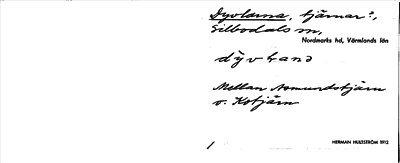 Dyvlarna, tjärnar?,
Silbodals sn,
Nordmarks hd, Värmlands län
dỳvḷaṇa
Mellan Åsmundstjärn
o. Kotjärn
HERMAN HULTSTRÖM 1912
1